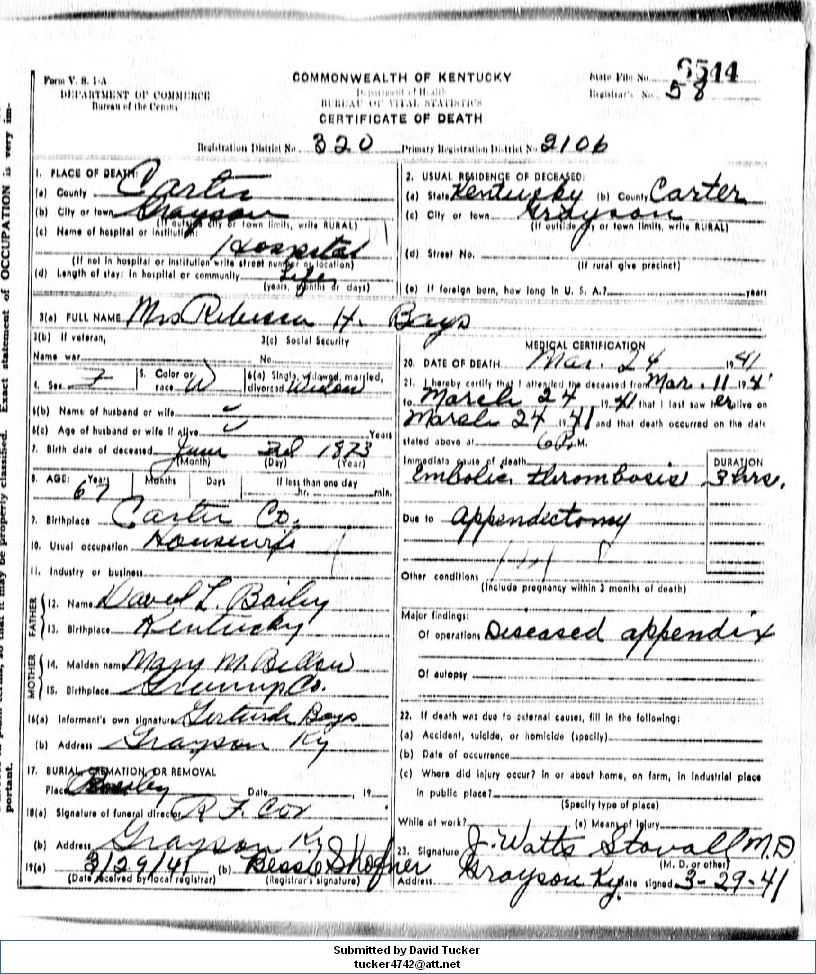 Form V. S. 1-A
DEPARTMENT OF COMMERCE
Bureau of the Census
COMMONWEALTH OF KENTUCKY
Department of Health
BUREAU OF VITAL STATISTICS
CERTIFICATE OF DEATH
State File No. 6544
Registrar's No. 58
Registration District No. 320 Primary Registration District No. 2106
1. PLACE OF DEATH:
(a) County Carter
(b) City or town Grayson
(If outside city or town limits, write RURAL)
(c) Name of hospital or institution:
Hospital
(If not in hospital or institution write street number or location)
(d) Length of stay: In hospital or community Life
(years, months or days)
2. USUAL RESIDENCE OF DECEASED:
(a) State Kentucky (b) County Carter
(c) City or town Grayson
(If outside city or town limits, write RURAL)
(d) Street No.
(If rural give precinct)
(e) If foreign born, how long in U. S. A.? years
3(a) FULL NAME Mrs Rebecca H. Bays
3(b) If veteran,
Name war
3(c) Social Security
No.
4. Sex F
5. Color or race W
6(a) Single, widowed, married, divorced Widow
6(b) Name of husband or wife
6(c) Age of husband or wife if alive Years
7. Birth date of deceased June 1873
(Month) (Day) (Year)
8. AGE: Years 67 Months Days If less than one day
hr. min.
9. Birthplace Carter Co.
10. Usual occupation Housewife
11. Industry or business
FATHER
12. Name David L. Bailey
13. Birthplace Kentucky
MOTHER
14. Maiden name Mary M.
15. Birthplace Greenup Co.
16(a) Informent's own signature Gertrude Bays
(b) Address Grayson Ky
17. BURIAL, CREMATION, OR REMOVAL
Place Date , 19
18(a) Signature of funeral director R F Cox
(b) Address Grayson Ky
19(a) 3/29/41 (b) Bess C Shofner
(Date received by local registrar) (Registrar's signature)
MEDICAL CERTIFICATION
20. DATE OF DEATH Mar. 24 1941
21. I hereby certify that I attended the deceased from Mar. 11 1941
to March 24 1941 that I last saw her alive on
March 24 1941 and that death occurred on the date
stated above at 6 P. M.
Immediate cause of death
Embolic thrombosis
DURATION
3 hrs.
Due to appendectomy
Other conditions
(Include pregnancy within 3 months of death)
Major findings:
Of operations Diseased appendix
Of autopsy
22. If death was due to external causes, fill in the following:
(a) Accident, suicide, or homicide (specify)
(b) Date of occurrence
(c) Where did injury occur? In or about home, on farm, in industrial place
in public place?
(Specify type of place)
While at work? (e) Means of Injury
23. Signature J. Watts Stovall M.D
(M. D. or other)
Address Grayson Ky. Date signed 3-29-41
so that it may be properly classified. Exact statement of OCCUPATION is very im-
portant.
Submitted by David Tucker
tucker4742@att.net